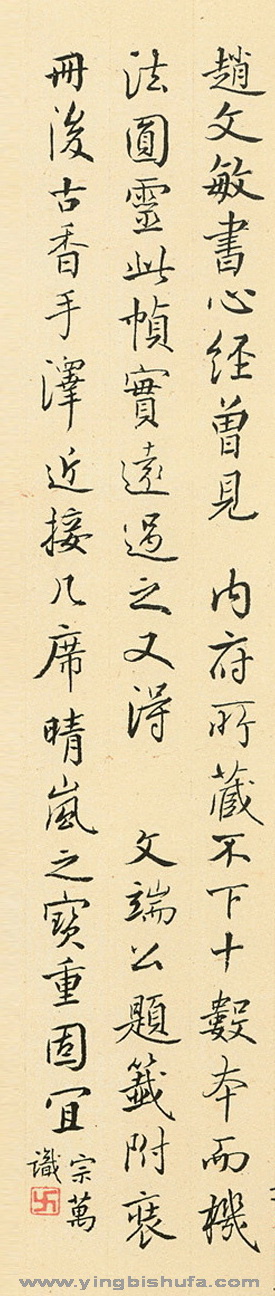 趙文敏書心經曾見 內府所藏不下十數本而機
法圓靈此幀實遠過之又得 文端公題籤附裝
冊後古香手澤近接几席晴嵐之寶重固宜
宗萬
識
卍
www.yingbishufa.com